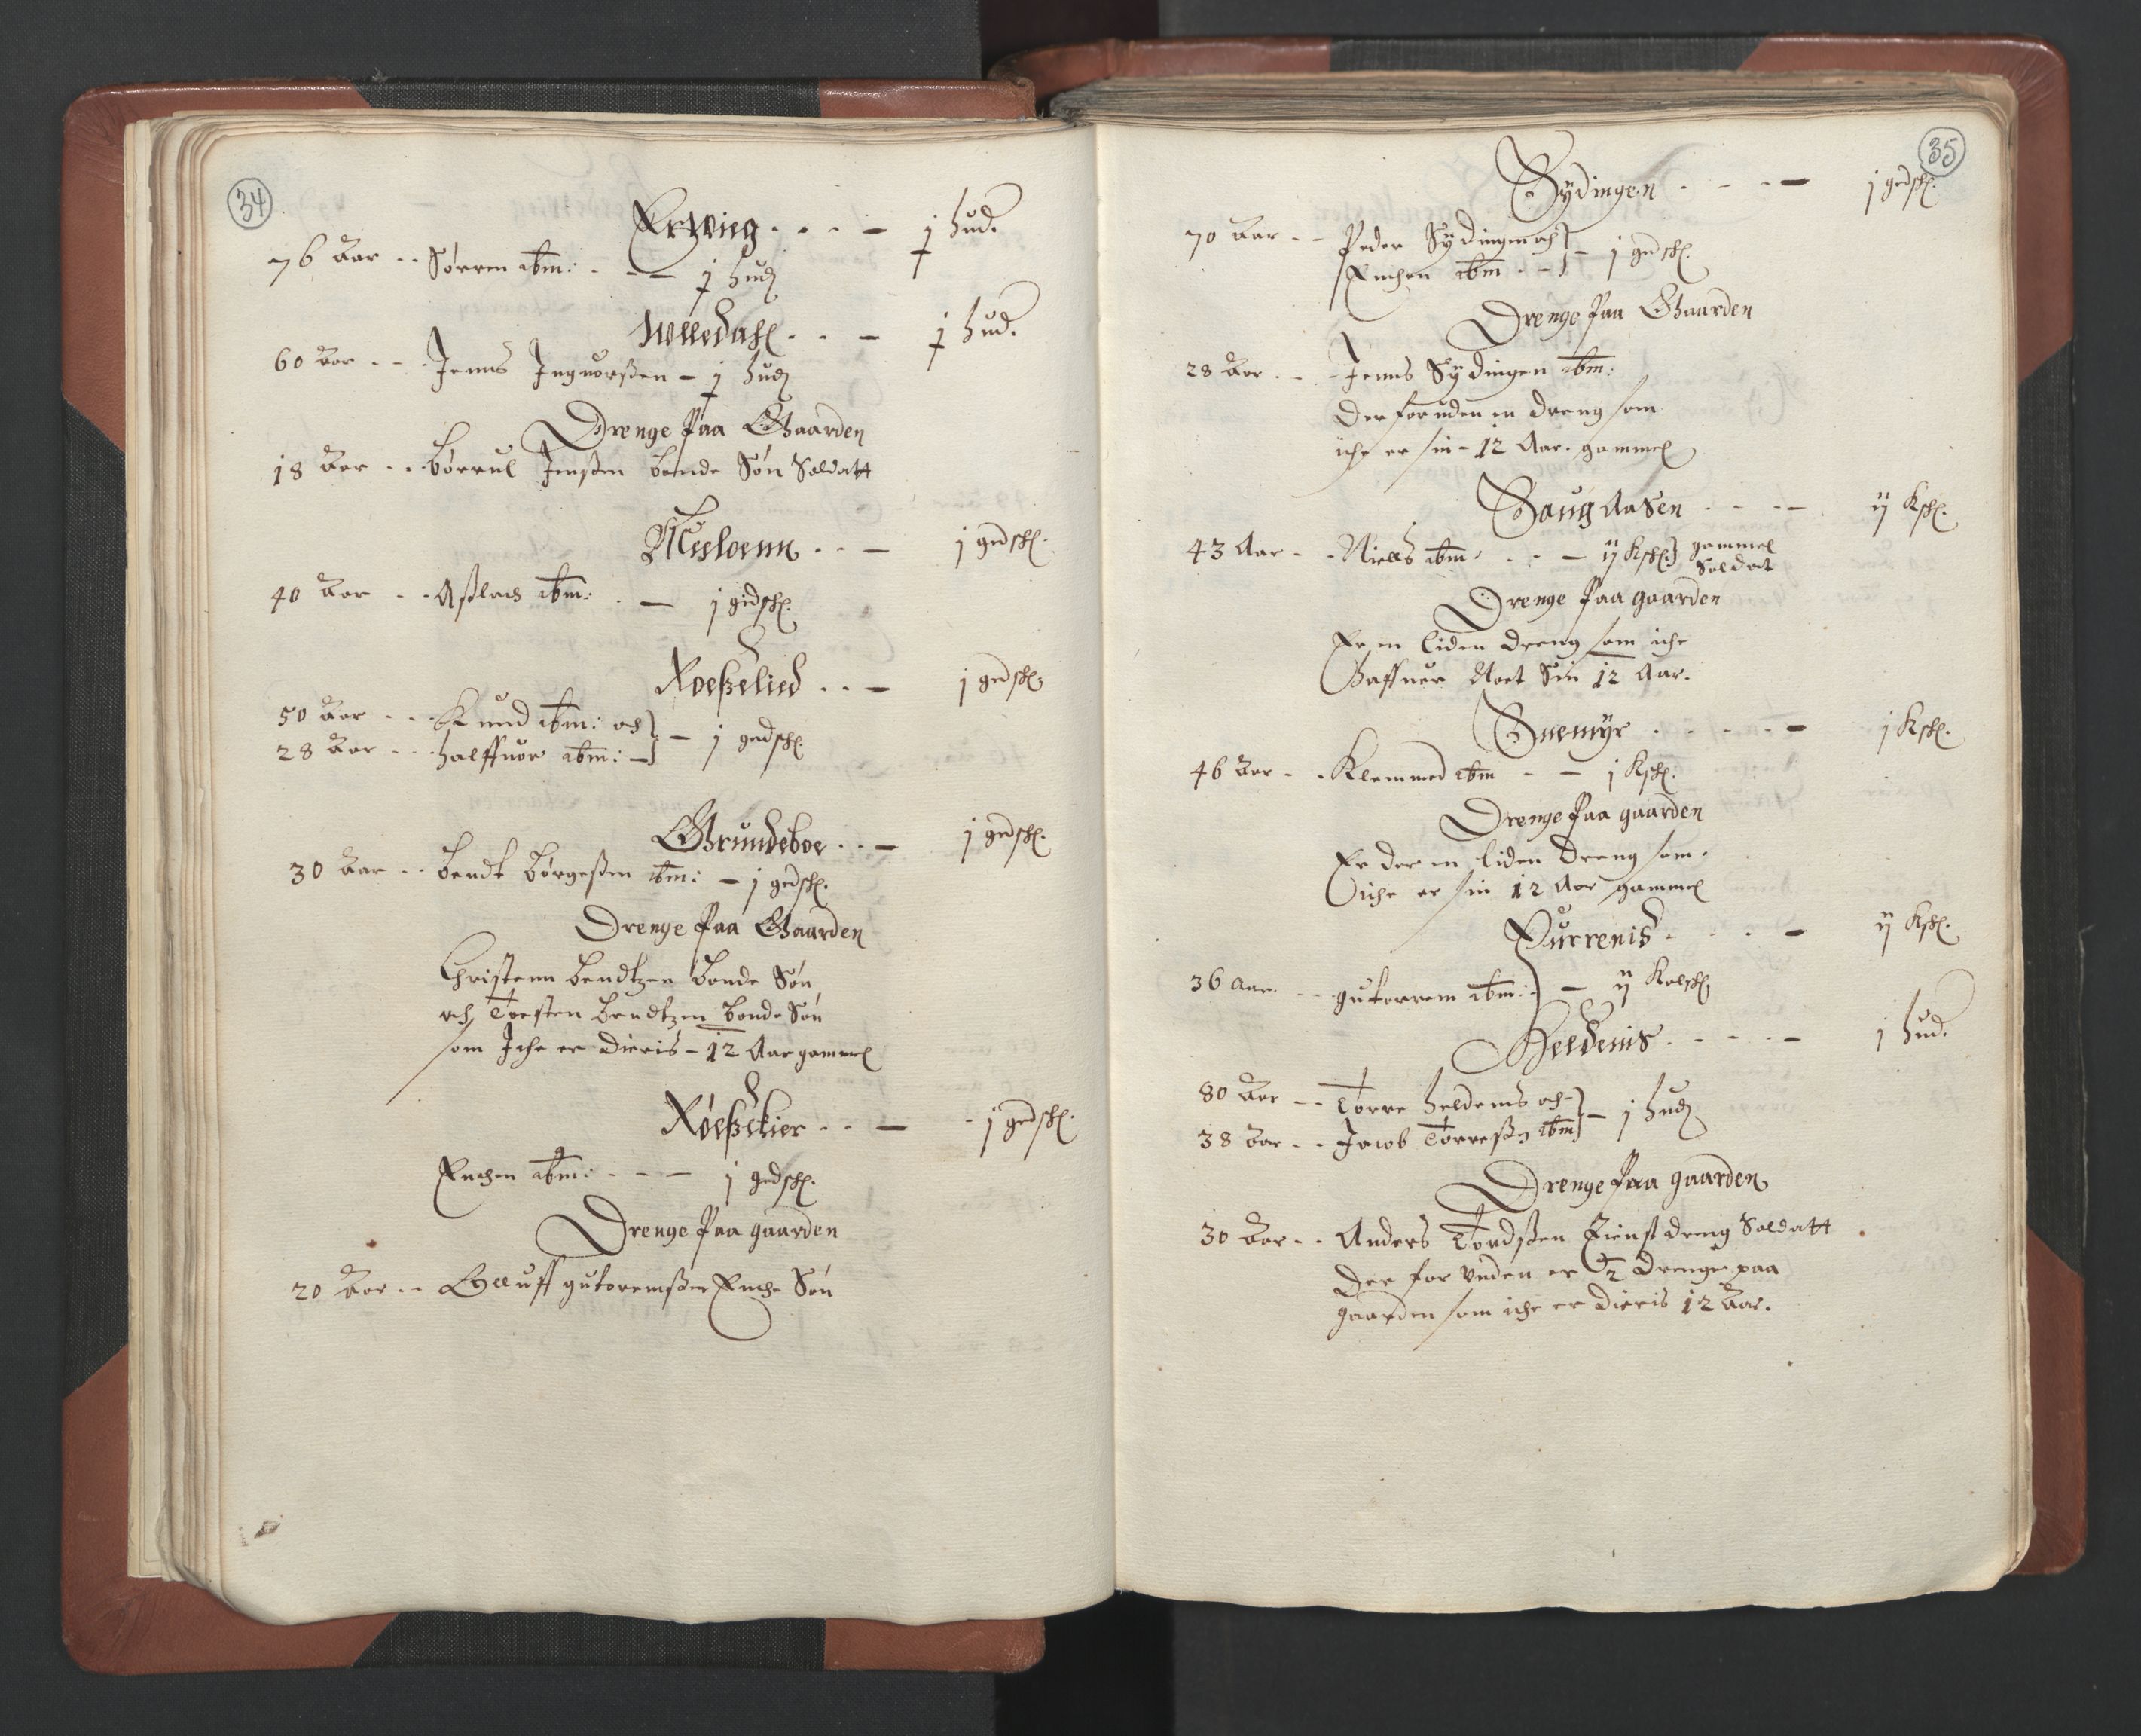 34
Erwieg - - - j hud.
76 Aar - - Sørren ibm: - - - j hud
Wlledahl - - - j hud.
60 Aar - - Jenns Inguorßen - j hud
Drenge Paa Gaarden
18 Aar - - Børruel Jenßen bonde Søn Soldatt
j gedsk.
40 Aar - - Aßlach ibm: - - j gidsk.
Roeßelied - - - j gedsk.
50 Aar - - Knud ibm: och
28 Aar - - halffuor ibm: - j gedsk.
Grundeboe - - - j gedsk.
30 Aar - - bendt Børgeßen ibm: - j gedsk.
Drenge Paa Gaarden
Christenn bendtzen bonde Søn
och Torsten bendtzen bonde Søn
som Iche er dieris - 12 Aar gammel
Røeßekier - - - j gedsk.
Enchen ibm: - - - j gedsk.
Drenge Paa gaarden
20 Aar - - Olluff gutoremßen Enche Søn
35
Sydingen - - - j gedsk.
70 Aar - - Peder Sydingen och
Enchen ibm - - j gedsk.
Drenge Paa Gaarden
28 Aar - - Jenns Sydingen ibm:
Der foruden en dreng som
iche er sin - 12 Aar. gammel
Haugaasen - - - ij Ksk.
43 Aar - - Niells ibm: - - - ij Ksk. gammel
Soldat
Drenge Paa gaarden
Er en liden dreng som iche
haffuer Naet Sin 12 Aar.
Snemyr - - - - j Ksk.
46 Aar - - Klemmed ibm - - j Ksk.
Drenge Paa gaarden
Er der en liden dreng som
iche er sin 12 Aar gammel
Purrenis - - - ij Ksk.
36 Aar - - gutorrem ibm: - ij Kalsk.
Heldenis - - - j hud.
80 Aar - - Torre heldenis och
38 Aar - - Jacob Torreßen ibm - j hud
Drenge Paa gaarden
30 Aar - - Anders Tordßen Tienst dreng Soldatt
Der for vnden er 2 drenge paa
gaarden som iche er dieris 12 Aar.